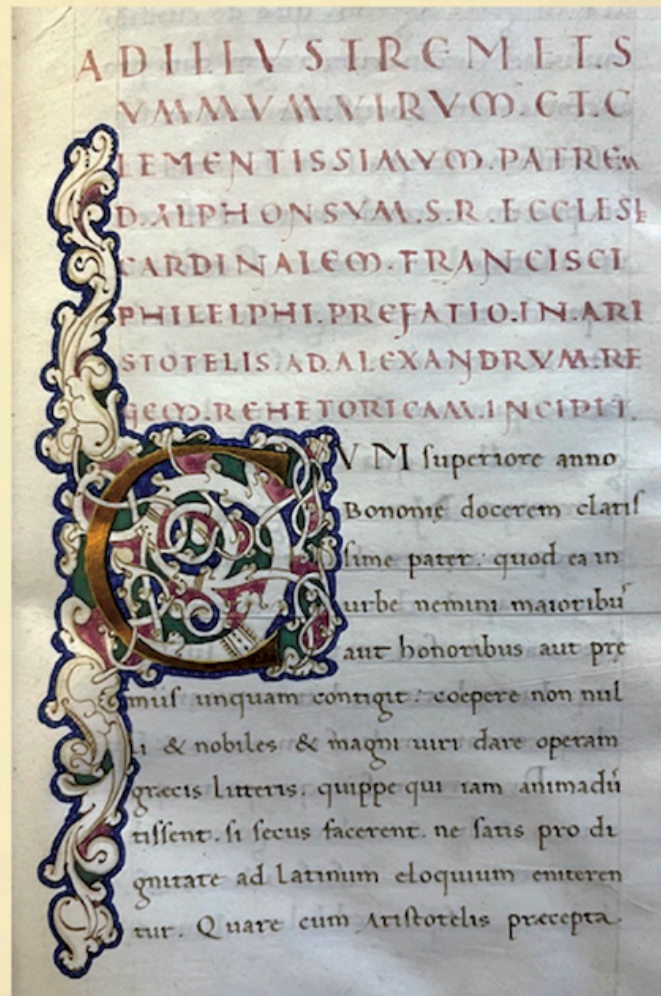 ADILLVSTREMETS
VMMVMVIRVM.ET.C
LEMENTISSIMVM.PATREM
D.ALPHONSVM.S.R.ECCLESIE
CARDINALEM.FRANCISCI
PHILELPHI.PREFATIO.IN.ARI
STOTELIS.AD.ALEXANDRVM.RE
GEM.RHETORICAM.INCIPIT.
CVM superiore anno
Bononię docerem clariſ
ſime pater: quod ea in
urbe nemini maioribuſ
aut honoribus aut prę
miiſ unquam contigit: coepere non nul
li & nobiles & magni uiri dare operam
gręcis litteris. quippe qui iam animadū
tiſſent. ſi ſecus facerent. ne ſatis pro di
gnitate ad Latinum eloquium eniteren
tur. Quare cum Ariſtotelis pręcepta